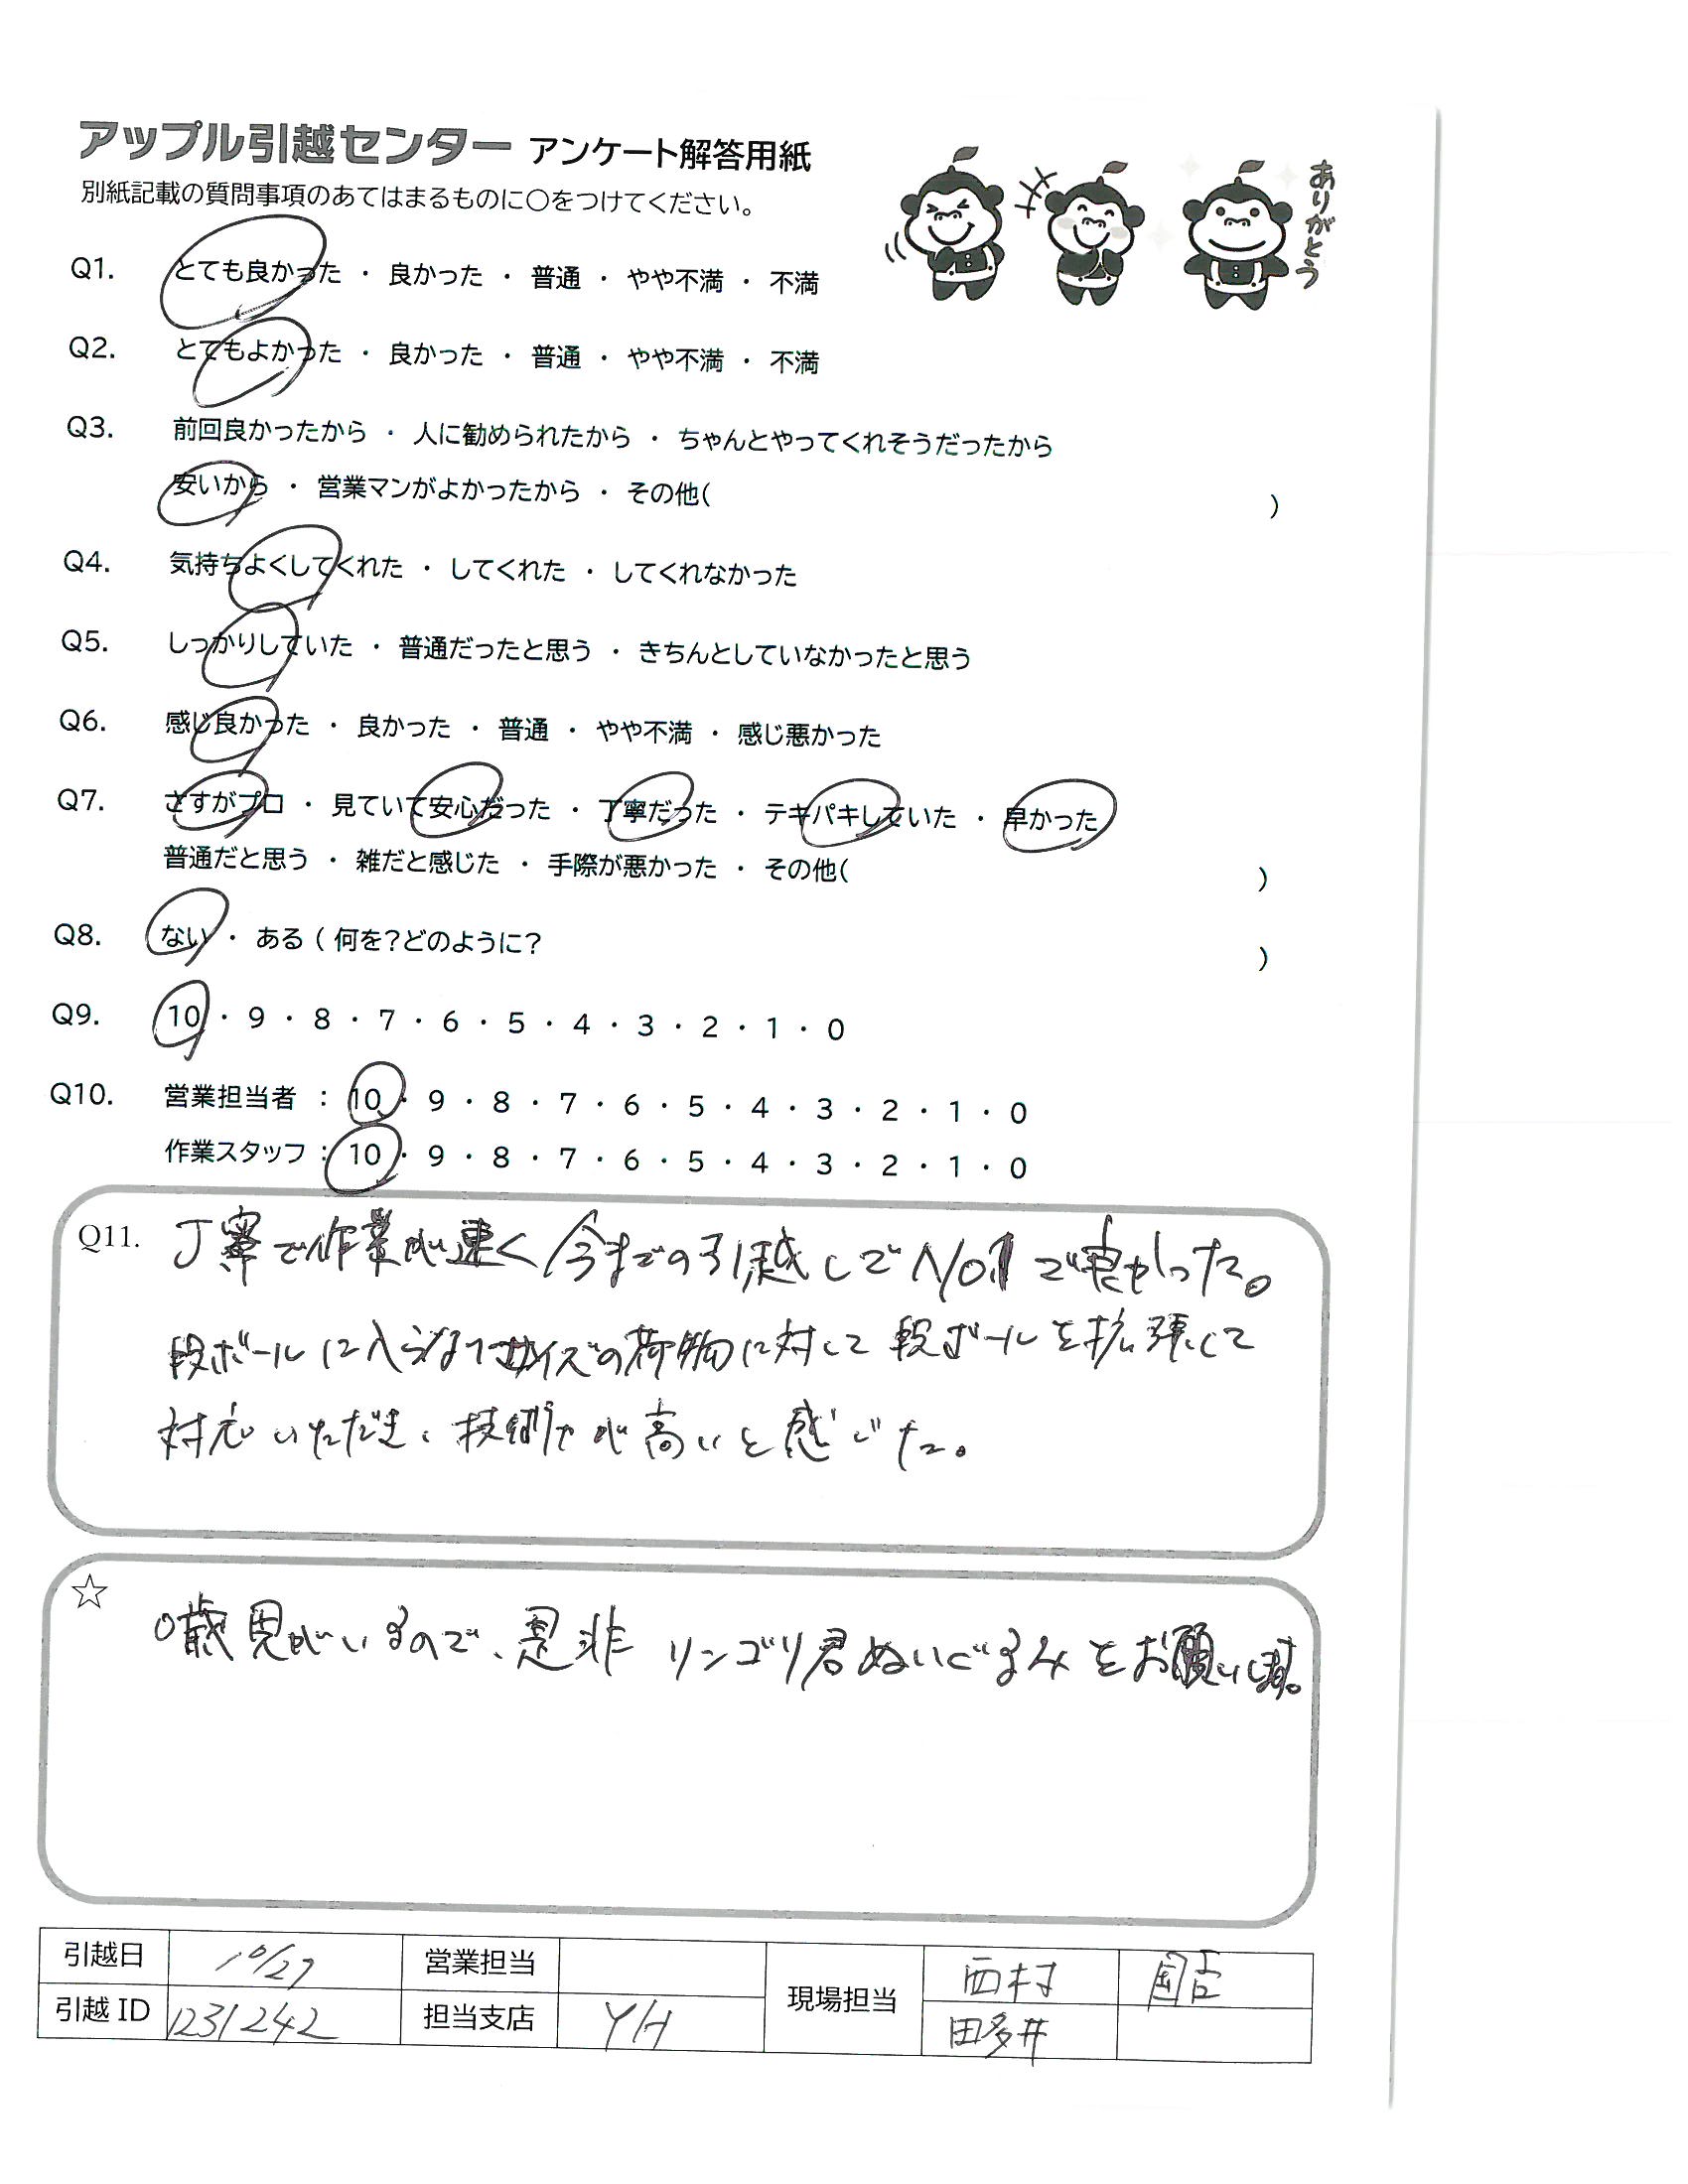 アップル引越センター アンケート解答用紙
別紙記載の質問事項のあてはまるものに〇をつけてください。
ありがとう
Q1. とても良かった ・ 良かった ・ 普通 ・ やや不満 ・ 不満
Q2. とてもよかった ・ 良かった ・ 普通 ・ やや不満 ・ 不満
Q3. 前回良かったから ・ 人に勧められたから ・ ちゃんとやってくれそうだったから
安いから ・ 営業マンがよかったから ・ その他( )
Q4. 気持ちよくしてくれた ・ してくれた ・ してくれなかった
Q5. しっかりしていた ・ 普通だったと思う ・ きちんとしていなかったと思う
Q6. 感じ良かった ・ 良かった ・ 普通 ・ やや不満 ・ 感じ悪かった
Q7. さすがプロ ・ 見ていて安心だった ・ 丁寧だった ・ テキパキしていた ・ 早かった
普通だと思う ・ 雑だと感じた ・ 手際が悪かった ・ その他( )
Q8. ない ・ ある ( 何を?どのように? )
Q9. 10 ・ 9 ・ 8 ・ 7 ・ 6 ・ 5 ・ 4 ・ 3 ・ 2 ・ 1 ・ 0
Q10. 営業担当者 : 10 ・ 9 ・ 8 ・ 7 ・ 6 ・ 5 ・ 4 ・ 3 ・ 2 ・ 1 ・ 0
作業スタッフ : 10 ・ 9 ・ 8 ・ 7 ・ 6 ・ 5 ・ 4 ・ 3 ・ 2 ・ 1 ・ 0
Q11. 丁寧で作業が速く今までの引越しでNo.1で良かった。
段ボールに入らないサイズの荷物に対して段ボールを拡張して
対応いただき、技術力が高いと感じた。
☆
0歳児がいるので、是非 リンゴリ君ぬいぐるみをお願いします。
引越日 10/27 営業担当 現場担当 西村
引越 ID 1231242 担当支店 YH 田多井